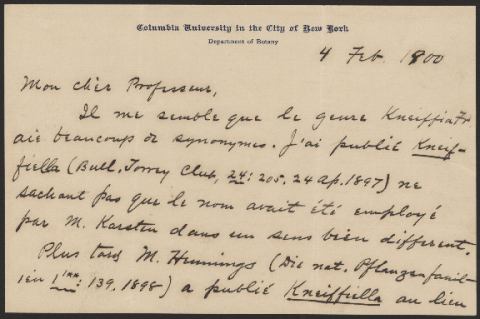 Columbia University in the City of New York
Department of Botany
4 Feb. 1800
Mon cher Professeur,
Il me semble que le genre Kneiffia Fr
aie beaucoup de synonymes. J'ai publié Kneif-
fiella (Bull. Torrey Club, 24: 205. 24 Ap. 1897) ne
sachant pas que le nom avait été employé
par M. Karsten dans un sens bien different.
Plus tard M. Hennings (Die nat. Pflanzenfamil-
ien 1¹**: 139. 1898) a publié Kneiffiella au lieu